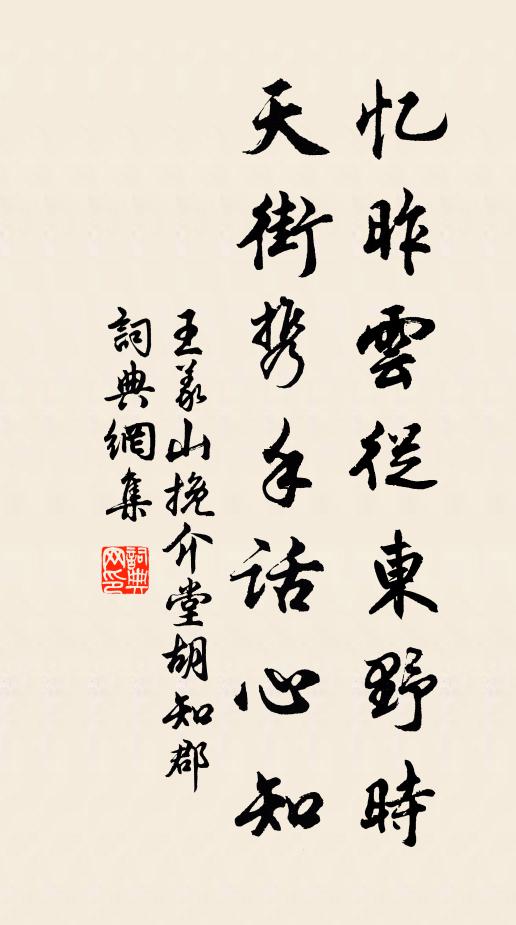 忆昨雲從東野時
天街携手話心知
王義山挽介堂胡知郡
詞典網集
詞典网印